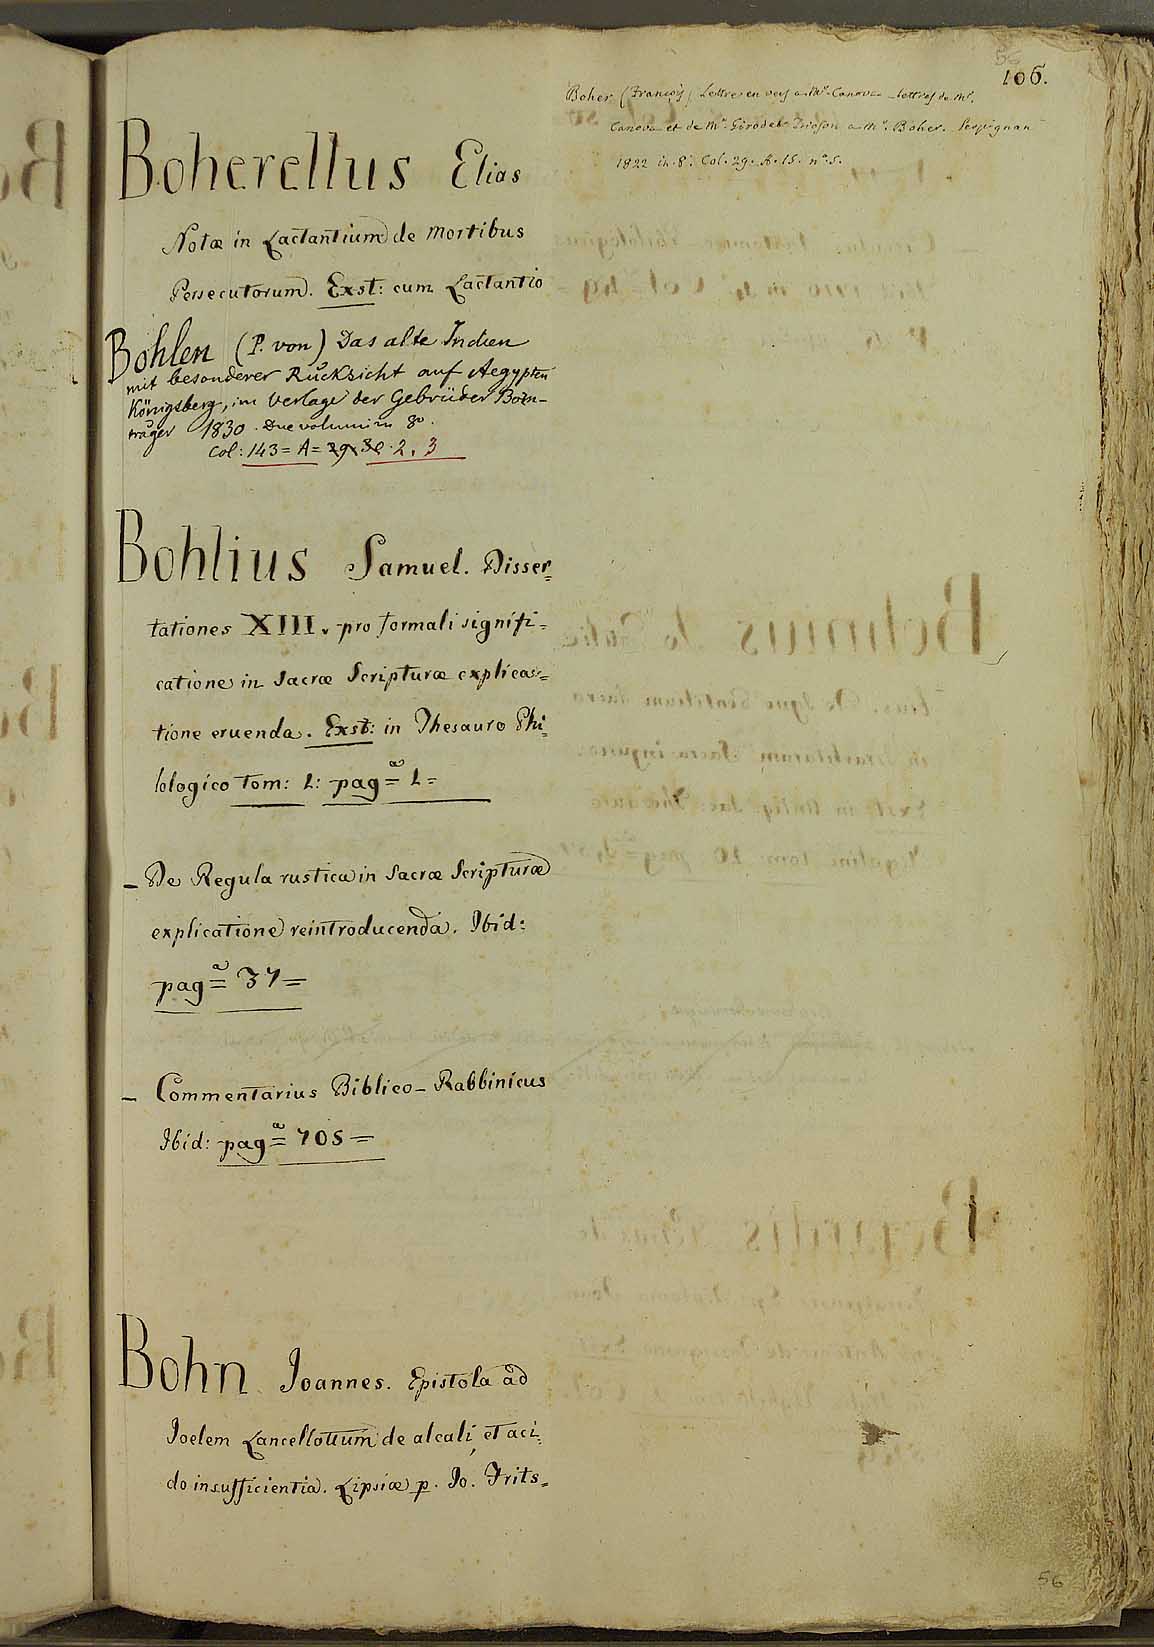 106.
56
Boher (François) Lettre en vers a Mr. Canova lettres de Mr.
Canova et de Mr. Girodet-Trioson a Mr. Boher. Perpignan
1822 in 8. Col. 29. A. 15. n.° 5.
Boherellus Elias
Notæ in Lactantium de Mortibus
Persecutorum. Exst: cum Lactantio
Bohlen (P. von) Das alte Indien
mit besonderer Rücksicht auf Aegypten
Königsberg, im Verlage der Gebrüder Born-
träger 1830. Due volumi in 8°.
Col: 143 = A = 2. 3
Bohlius Samuel. Disser=
tationes XIII. pro formali signifi=
catione in Sacræ Scripturæ explica=
tione eruenda. Exst: in Thesauro Phi=
lologico tom: 1: pag=ᵃ 1=
– De Regula rustica in Sacræ Scripturæ
explicatione reintroducenda. Ibid:
pag=ᵃ 37=
– Commentarius Biblico-Rabbinicus
Ibid: pag=ᵃ 705=
Bohn Joannes. Epistola ad
Joelem Lancellottum de alcali, et aci=
do insufficientia. Lipsiæ p. Jo. Frits=
56